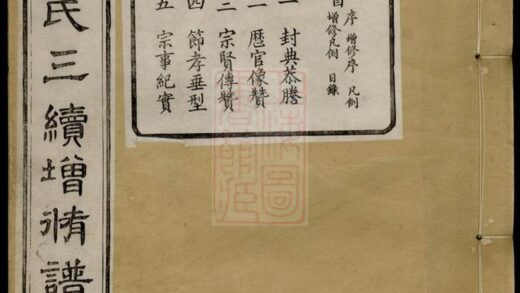 序 增修序 凡例
增修凡例 目錄
一 封典恭謄
二 厯官像贊
三 宗賢傳贊
四 節孝垂型
五 宗事紀實
氏三續增脩譜